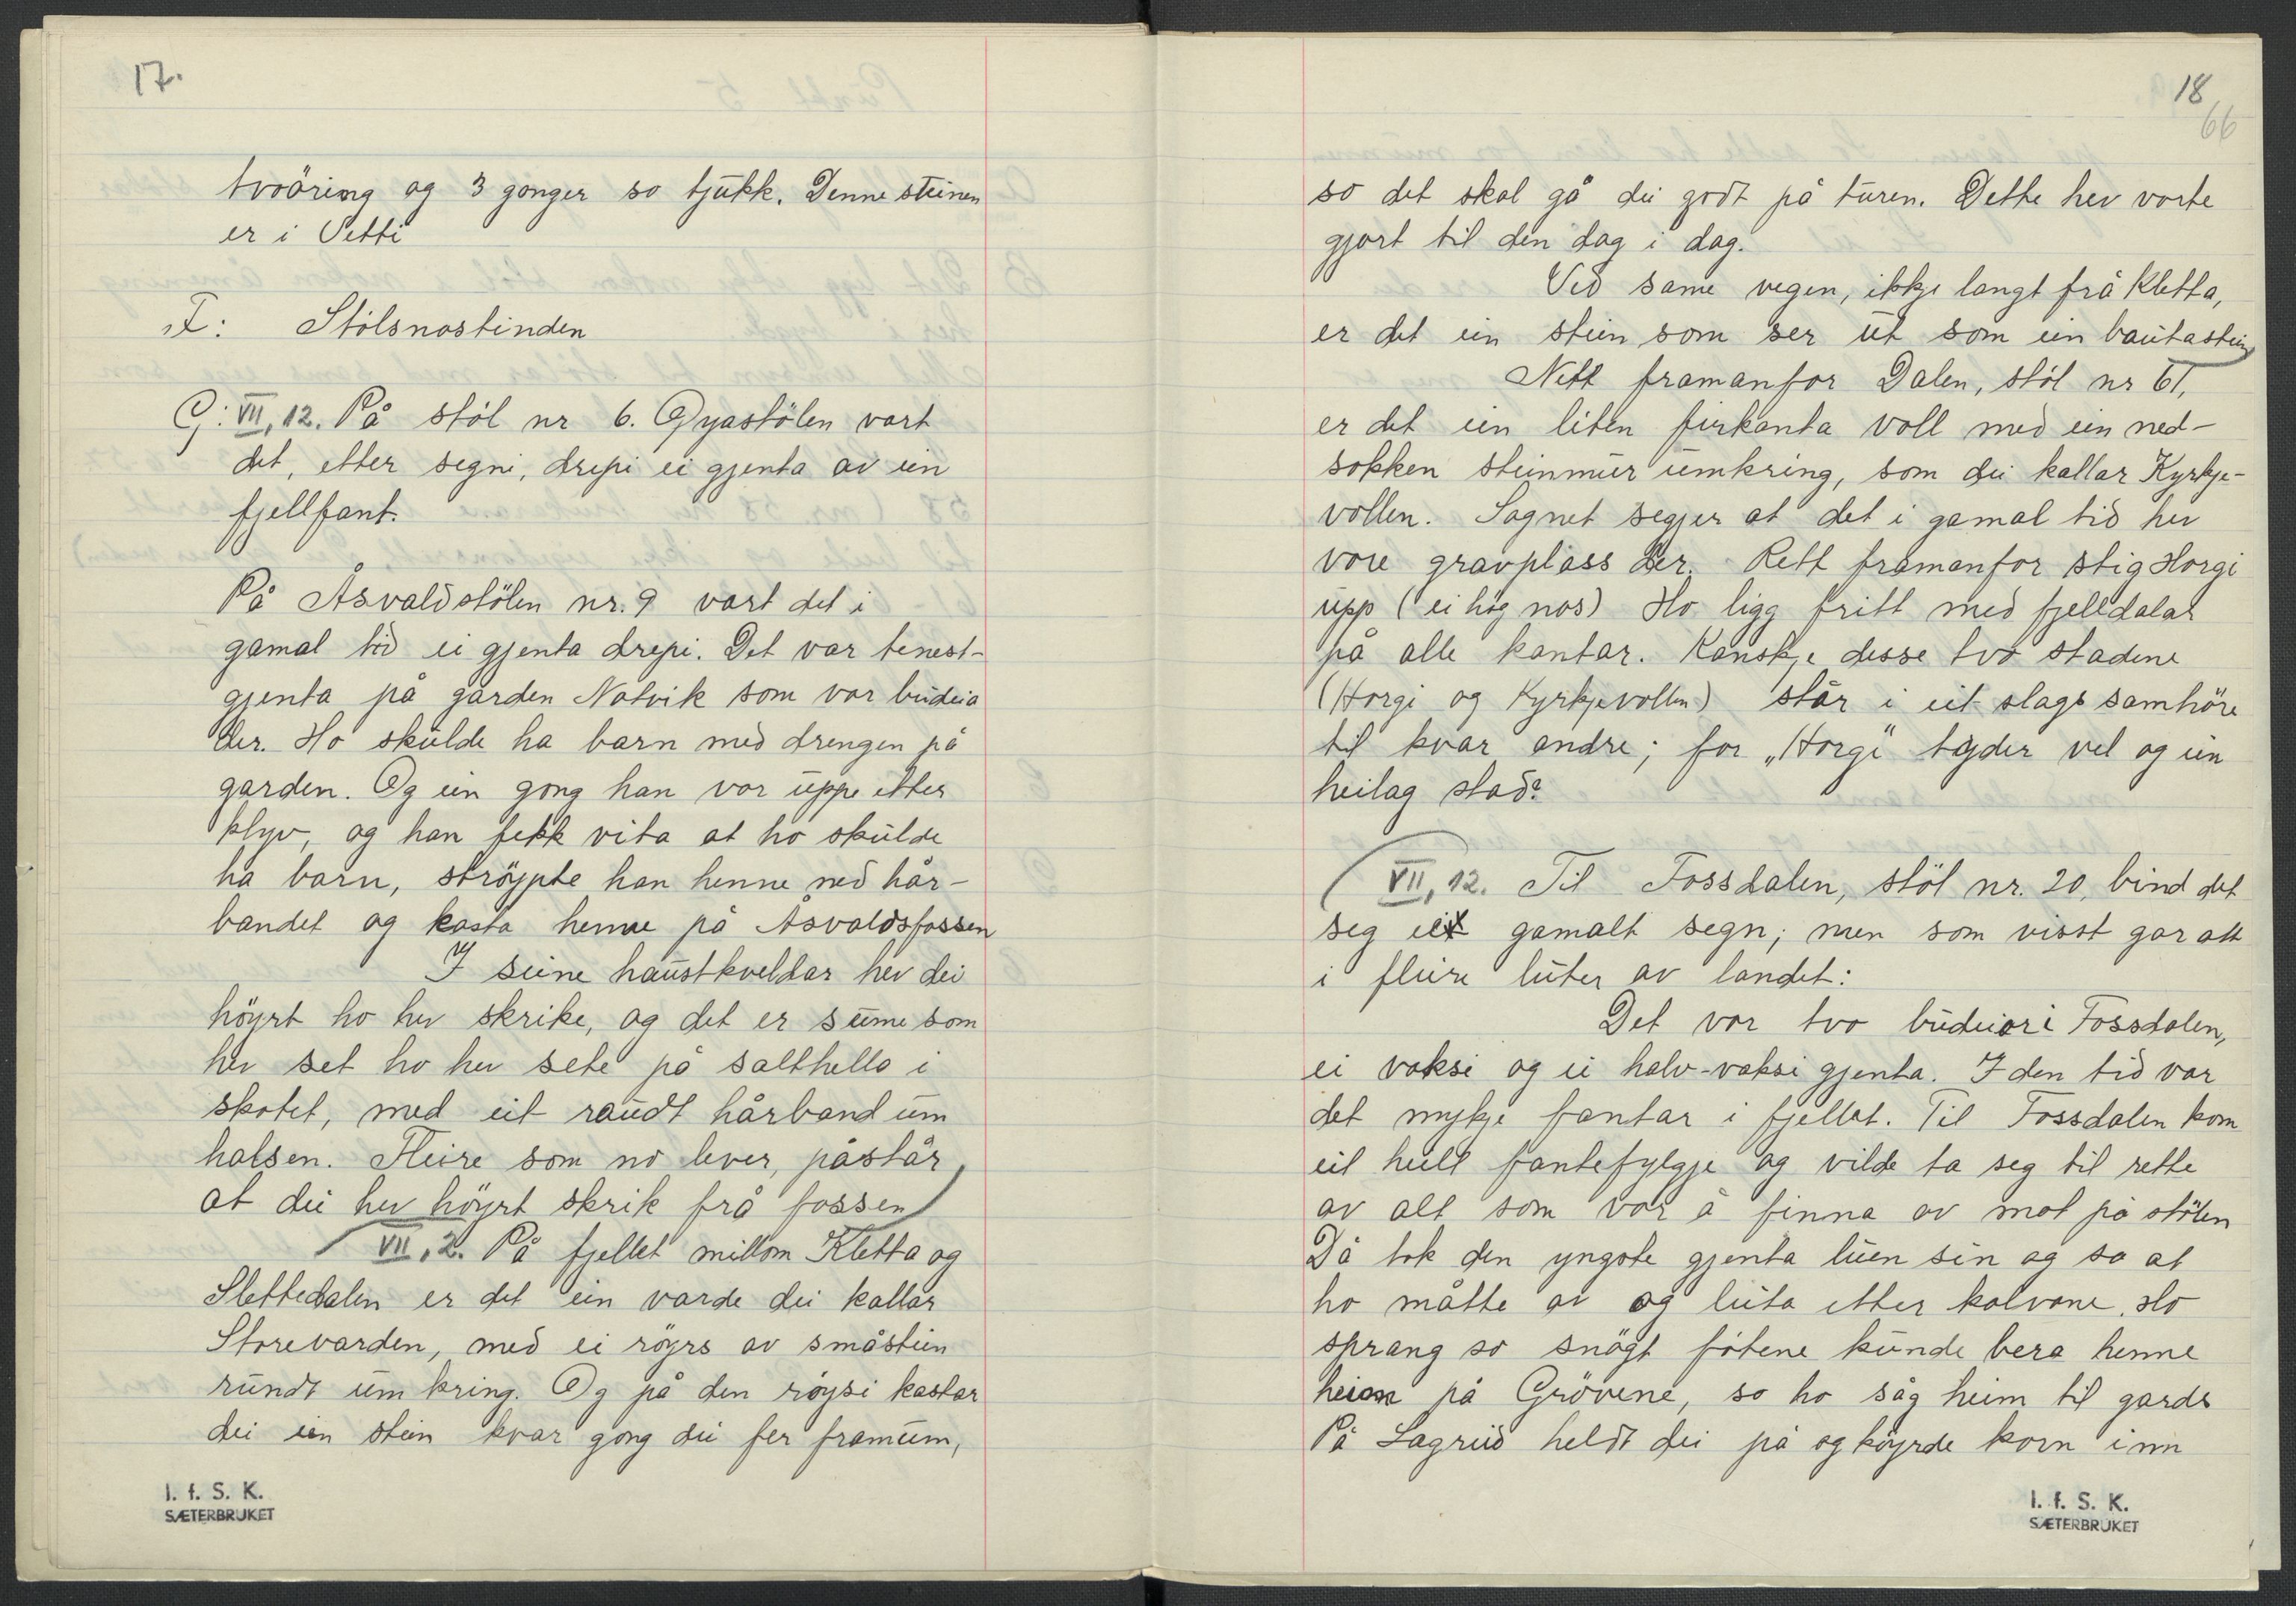 17.
tvoöring og 3 gonger so tjukk. Denne steinen
er i Vetti
F: Stölsnostinden
G: VII, 12. På stöl nr 6. Øyastölen vart
det, etter segni, drepi ei gjenta av ein
fjellfant.
På Åsvaldstölen nr. 9 vart det i
gamal tid ei gjenta drepi. Det var tenest-
gjenta på garden Natvik som var budeia
der. Ho skulde ha barn med drengen på
garden. Og ein gong han var uppe etter
klyv, og han fekk vita at ho skulde
ha barn, ströypte han henne med hår-
bandet og kasta henne på Åsvaldsfossen
I seine haustkveldar hev dei
höyrt ho hev skrike, og det er sume som
hev set ho hev sete på salthella i
skotet, med eit raudt hårband um
halsen. Fleire som no lever, påstår,
at dei hev höyrt skrik frå fossen
VII, 2. På fjellet millom Kletta og
Slettedalen er det ein varde dei kallar
Storevarden, med ei röyrs av småstein
rundt um kring. Og på den röysi kastar
dei ein stein kvar gong dei fer framum,
I. f. S. K.
SÆTERBRUKET
18
66
so det skal gå dei godt på turen. Dette hev vorte
gjort til den dag i dag.
Ved same vegen, ikkje langt frå Kletta,
er det ein stein som ser ut som ein bautastein
Nett framanfor Dalen, stöl nr 61,
er det ein liten firkanta voll med ein ned-
sokken steinmur umkring, som dei kallar Kyrkje-
vollen. Sagnet segjer at det i gamal tid hev
vore gravplass der. Rett framanfor stig Horgi
upp (ei höġ nos) Ho ligg fritt med fjelldalar
på alle kantar. Kanskje desse two stadene
(Horgi og Kyrkjevollen) står i eit slags samhöre
til kvar andre; for "Horgi" tyder vel og ein
heilag stad?
VII, 12. Til Fossdalen, stöl nr. 20, bind det
seg eit gamalt segn; men som visst gar att
i fleire luter av landet:
Det var two budeior i Fossdalen,
ei vaksi og ei halv-vaksi gjenta. I den tid var
det mykje fantar i fjellet. Til Fossdalen kom
eit heilt fantefylgje og vilde ta seg til rette
av alt som var å finna av mat på stölen
Då tok den yngste gjenta luen sin og sa at
ho måtte av og luta etter kalvane. Ho
sprang so snögt fötene kunde bera henne
heim på Grövene, so ho såg heim til gards
På Lagreid heldt dei på og köyrde korn inn
I. f. S. K.
SÆTERBRUKET